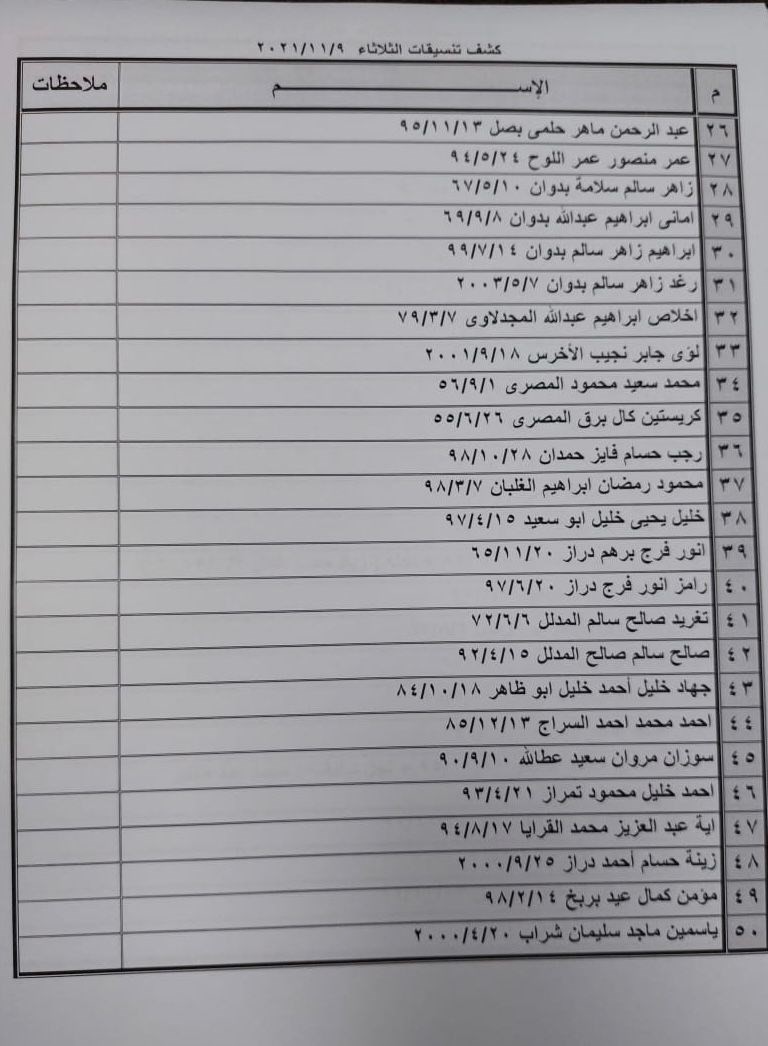 كشف تنسيقات الثلاثاء ٢٠٢١/١١/٩
م الإســـــــــم ملاحظات
٢٦ عبد الرحمن ماهر حلمى بصل ٩٥/١١/١٣
٢٧ عمر منصور عمر اللوح ٩٤/٥/٢٤
٢٨ زاهر سالم سلامة بدوان ٦٧/٥/١٠
٢٩ امانى ابراهيم عبدالله بدوان ٦٩/٩/٨
٣٠ ابراهيم زاهر سالم بدوان ٩٩/٧/١٤
٣١ رغد زاهر سالم بدوان ٢٠٠٣/٥/٧
٣٢ اخلاص ابراهيم عبدالله المجدلاوى ٧٩/٣/٧
٣٣ لؤى جابر نجيب الأخرس ٢٠٠١/٩/١٨
٣٤ محمد سعيد محمود المصرى ٥٦/٩/١
٣٥ كريستين كال برق المصرى ٥٥/٦/٢٦
٣٦ رجب حسام فايز حمدان ٩٨/١٠/٢٨
٣٧ محمود رمضان ابراهيم الغلبان ٩٨/٣/٧
٣٨ خليل يحيى خليل ابو سعيد ٩٧/٤/١٥
٣٩ انور فرج برهم دراز ٦٥/١١/٢٠
٤٠ رامز انور فرج دراز ٩٧/٦/٢٠
٤١ تغريد صالح سالم المدلل ٧٢/٦/٦
٤٢ صالح سالم صالح المدلل ٩٢/٤/١٥
٤٣ جهاد خليل أحمد خليل ابو ظاهر ٨٤/١٠/١٨
٤٤ احمد محمد احمد السراج ٨٥/١٢/١٣
٤٥ سوزان مروان سعيد عطالله ٩٠/٩/١٠
٤٦ احمد خليل محمود تمراز ٩٣/٤/٢١
٤٧ اية عبد العزيز محمد القرايا ٩٤/٨/١٧
٤٨ زينة حسام أحمد دراز ٢٠٠٠/٩/٢٥
٤٩ مؤمن كمال عيد بربخ ٩٨/٢/١٤
٥٠ ياسمين ماجد سليمان شراب ٢٠٠٠/٤/٢٠